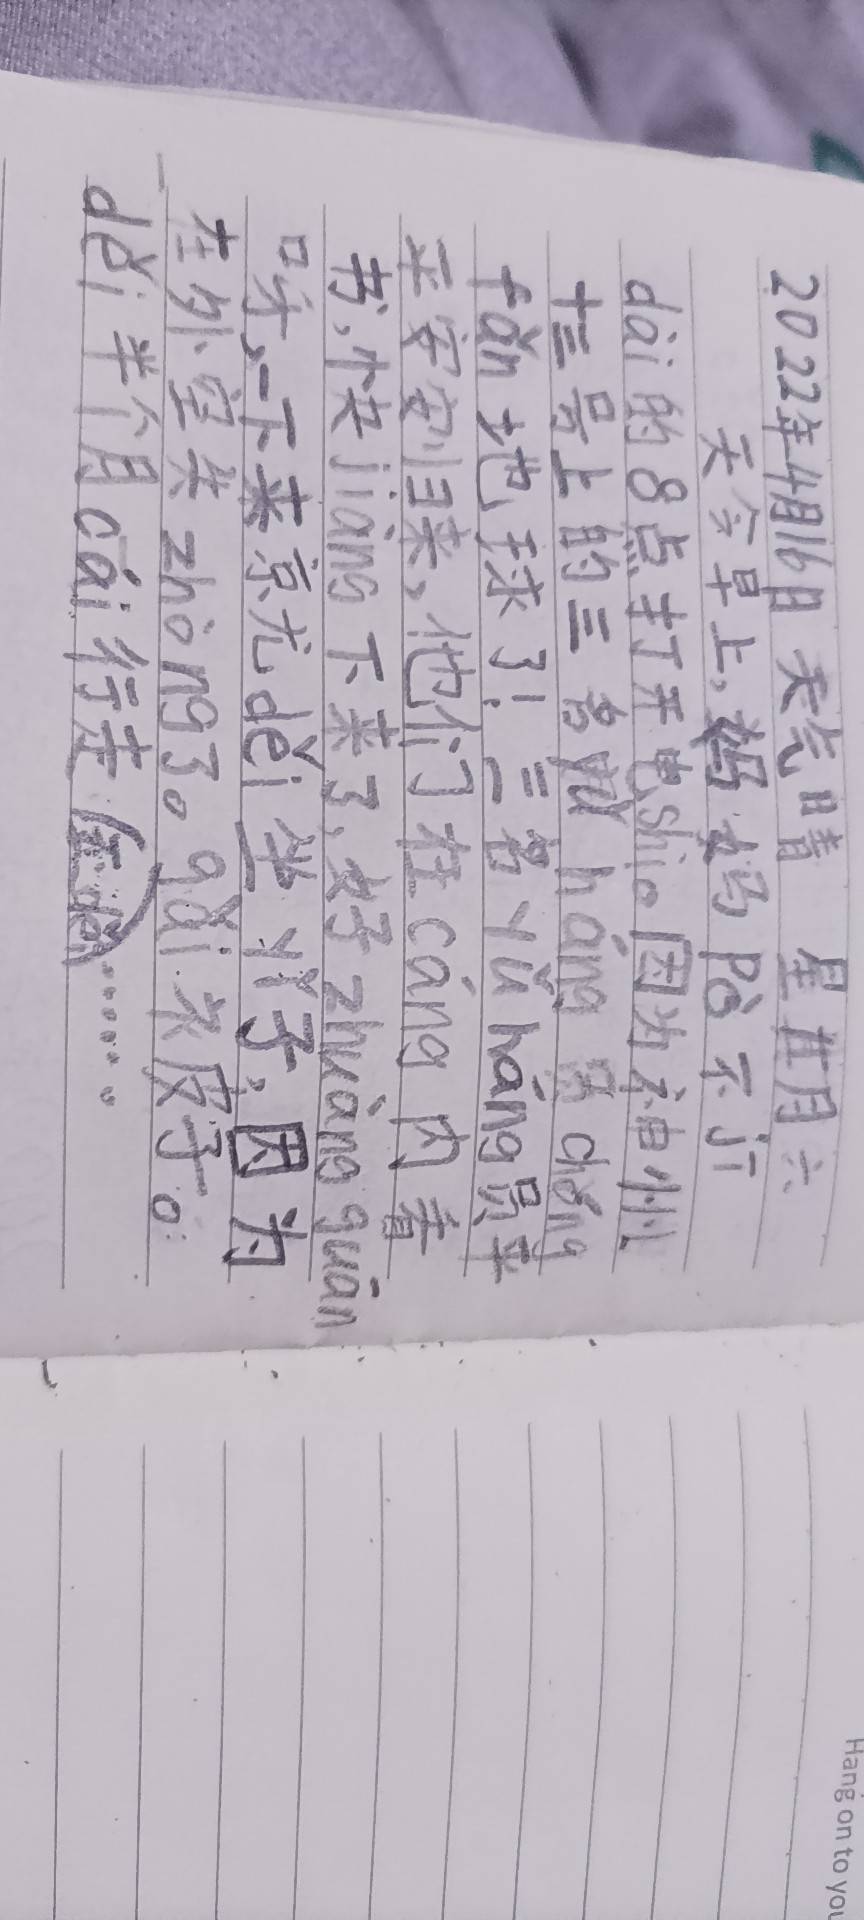 2022年4月16日 天气晴 星其月六
天今早上,妈妈pò不jī
dài的8点打开电shì。因为神州
十三号上的三名 háng员chéng
fǎn地球了!三名yǔ háng员平
平安安归来,他们在cāng内看
书,快jiàng下来了,好zhuàng guān
呀,一下来京尤děi坐yǐ子,因为
在外空失zhòng了。gǎi来度了。
děi半个月cái行走……
Hang on to you